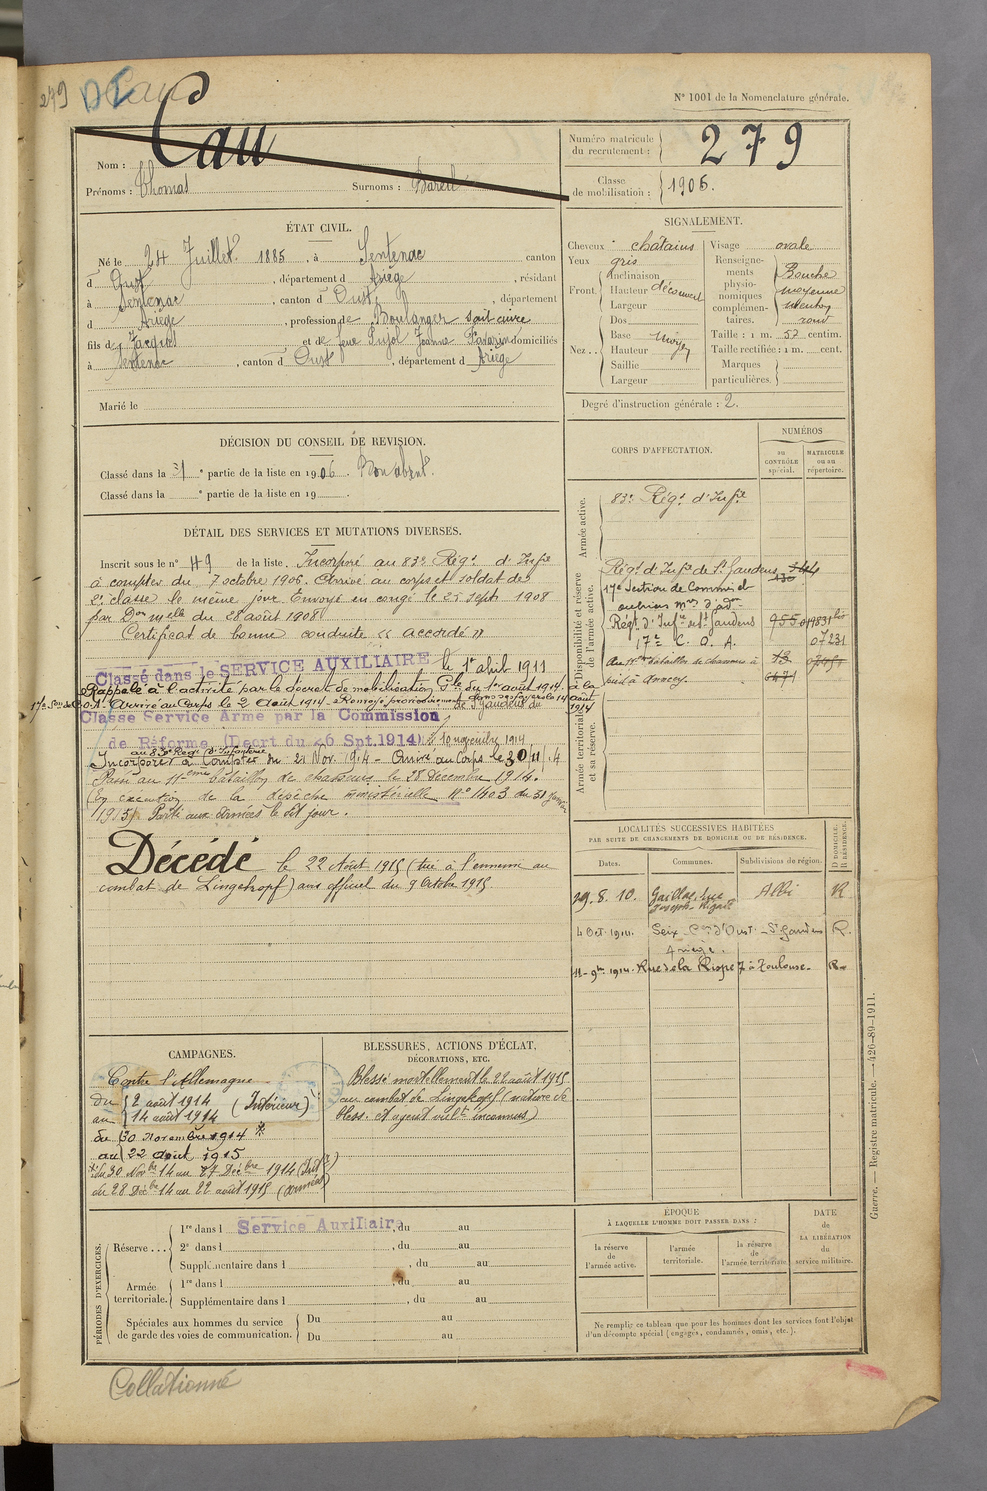 279
Cau
N° 1001 de la Nomenclature générale.
Nom : Cau
Prénoms : Thomas Surnoms : Bareil
Numéro matricule du recrutement : 279
Classe de mobilisation : 1905.
ÉTAT CIVIL.
Né le 24 Juillet 1885, à Sentenac canton
d' Oust, département d Ariège, résidant
à Sentenac, canton d' Oust, département
d Ariège, profession de Boulanger sait cuire
fils de Jacques et de feue Pujol Jeanne domiciliés
à Sentenac, canton d Oust, département d Ariège
Marié le
SIGNALEMENT.
Cheveux châtains
Yeux gris
Front. Inclinaison
Hauteur découvert
Largeur
Nez .. Dos
Base moyen
Hauteur
Saillie
Largeur
Visage ovale
Renseigne-
ments
physio-
nomiques
complémen-
taires.
Bouche
moyenne
menton
rond
Taille : 1 m. 52 centim.
Taille rectifiée : 1 m. cent.
Marques
particulières.
Degré d'instruction générale : 2.
DÉCISION DU CONSEIL DE REVISION.
Classé dans la 31 e partie de la liste en 1906. Bon absent.
Classé dans la e partie de la liste en 19 .
CORPS D'AFFECTATION.
NUMÉROS
au
CONTRÔLE
spécial.
MATRICULE
ou au
répertoire.
Armée active.
83e Régt d'Infie
Disponibilité et réserve
de l'armée active.
Régt d'Infie de St Gaudens
17e Section de Commis et
ouvriers mres d'adon
Régt d'Infie de St Gaudens 955
17e C. O. A. 07231
Au 11e bataillon de chasseurs à
pied à Annecy.
Armée territoriale
et sa réserve.
DÉTAIL DES SERVICES ET MUTATIONS DIVERSES.
Inscrit sous le n° 49 de la liste. Incorporé au 83e Régt d'Infie
à compter du 7 octobre 1906. Arrivé au corps et soldat de
2e classe le même jour. Envoyé en congé le 25 sept 1908
par Don mlle du 28 août 1908
Certificat de bonne conduite « accordé »
Classé dans le SERVICE AUXILIAIRE le 1er abril 1911
Rappelé à l'activité par le décret de mobilisation Gle du 1er août 1914, à la
17e Son de C.O.A. Arrivé au Corps le 2 Août 1914. Renvoyé provisoirement dans ses foyers le 14 août 1914
Classé Service Armé par la Commission de St Gaudens du
de Réforme (Décret du 26 Spt.1914) 10 novembre 1914
au 83e Régt d'Infanterie
Incorporé à Compter du 21 Nov. 1914 - Arrivé au Corps le 30/11/14
Passé au 11eme bataillon de chasseurs le 28 Décembre 1914.
(En exécution de la dépêche ministérielle N° 1403 du 31 Janvier
1915) Parti aux armées le dit jour.
Décédé le 22 Août 1915 (tué à l'ennemi au
combat de Lingekopf) avis officiel du 9 Octobre 1915.
LOCALITÉS SUCCESSIVES HABITÉES
PAR SUITE DE CHANGEMENTS DE DOMICILE OU DE RÉSIDENCE.
Dates. Communes. Subdivisions de région. D DOMICILE. R RÉSIDENCE.
29. 8. 10. Gaillac, rue Joseph Rigal Albi R
4 Oct. 1911. Seix - Con d'Oust - St Gaudens R.
Ariège.
11 - 9bre 1914. Rue de la Rispe 7 à Toulouse. R
CAMPAGNES.
Contre l'Allemagne
du 2 août 1914
au 14 août 1914 (Intérieur)
du 30 Novembre 1914 *
au 22 août 1915
* du 30 Novbre 14 au 27 Décbre 1914 (Intr)
du 28 Décbre 14 au 22 août 1915 (Armées)
BLESSURES, ACTIONS D'ÉCLAT,
DÉCORATIONS, ETC.
Blessé mortellement le 22 août 1915
au combat de Lingekopf (nature de
bless. et agent vult inconnus)
PÉRIODES D'EXERCICES.
Réserve ... 1re dans l Service Auxiliaire, du au
2e dans l , du au
Supplémentaire dans l , du au
Armée
territoriale. 1re dans l , du au
Supplémentaire dans l , du au
Spéciales aux hommes du service
de garde des voies de communication. Du au
Du au
ÉPOQUE
À LAQUELLE L'HOMME DOIT PASSER DANS :
la réserve
de
l'armée active.
l'armée
territoriale.
la réserve
de
l'armée territoriale.
DATE
de
LA LIBÉRATION
du
service militaire.
Ne remplir ce tableau que pour les hommes dont les services font l'objet
d'un décompte spécial (engagés, condamnés, omis, etc.).
Guerre. — Registre matricule. — 426-89-1911.
Collationné